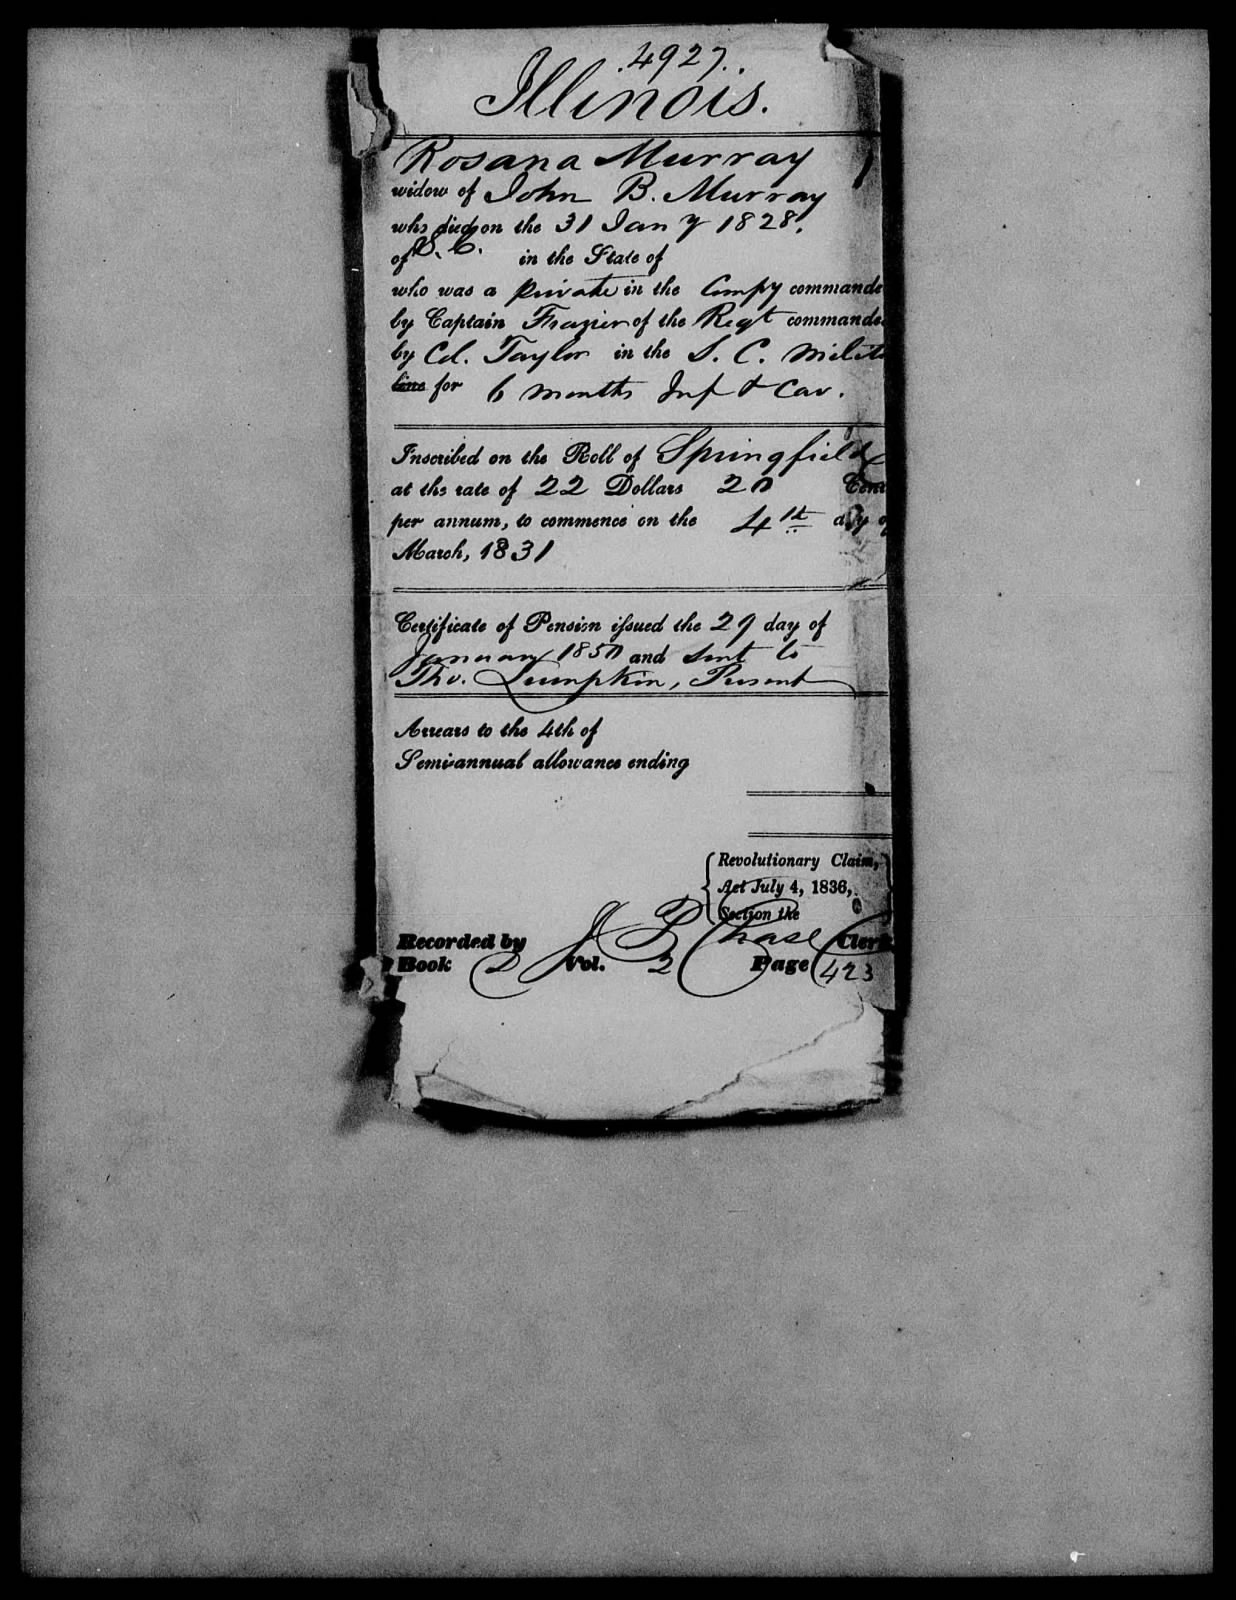 4927.
Illinois.
Rosana Murray
widow of John B. Murray
who died on the 31 Jany 1828.
of S. C. in the State of
who was a private in the Compy commande
by Captain Frazier of the Regt commande
by Col. Taylor in the S. C. milit
line for 6 months Inf & Cav.
Inscribed on the Roll of Springfield
at the rate of 22 Dollars 20 Cent
per annum, to commence on the 4th day of
March, 1831
Certificate of Pension issued the 29 day of
January 1850 and sent to
Tho. Lumpkin, Present
Arrears to the 4th of
Semi-annual allowance ending
Revolutionary Claim,
Act July 4, 1836,
Section the
Recorded by J P Chase Clerk
Book D Vol. 2 Page 423